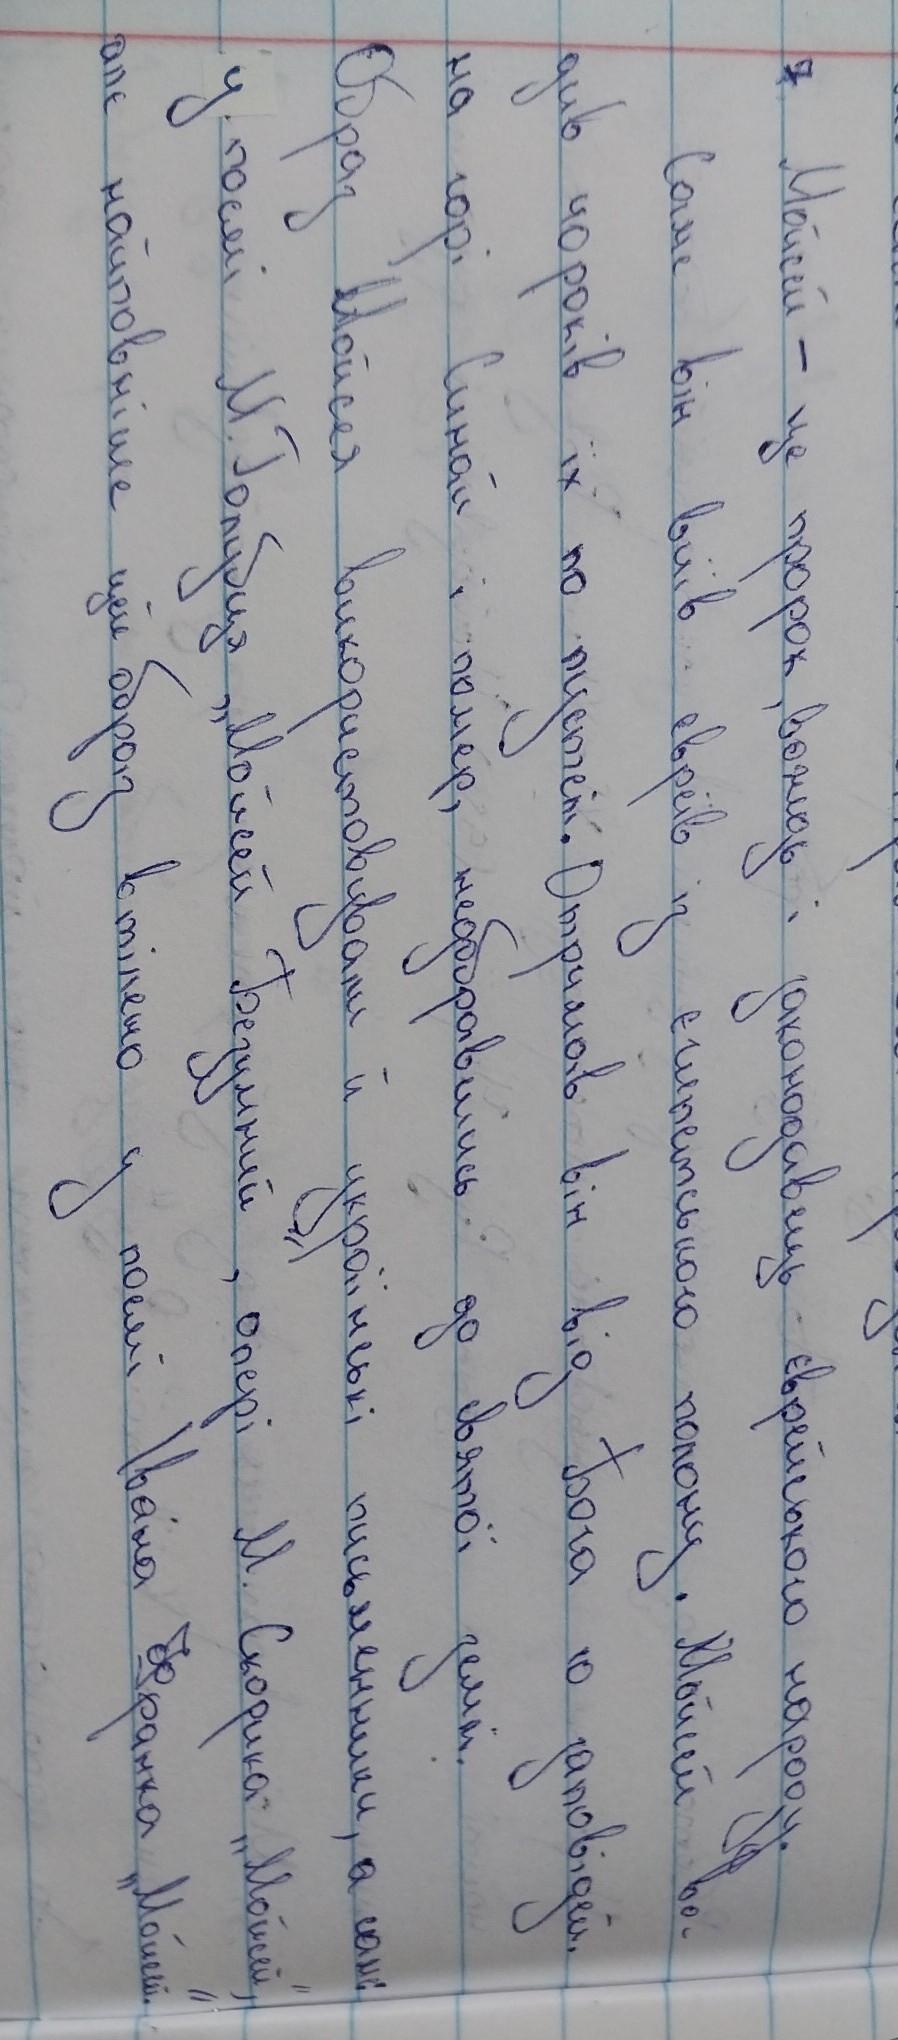 Мойсей - це пророк, вождь і законодавець єврейського народу.
Саме він вивів євреїв із єгипетського полону. Мойсей 40 р во-
див чороків їх по пустелі. Отримав він від Бога 10 заповідей.
на горі Синай і помер, недобравшись до святої землі.
Образ Мойсея використовували й українські письменники, а саме:
у поемі М. Голубця „Мойсей Безумний", опері М. Скорика „Мойсей",
але найповніше цей образ втілено у поемі Івана Франка „Мойсей".